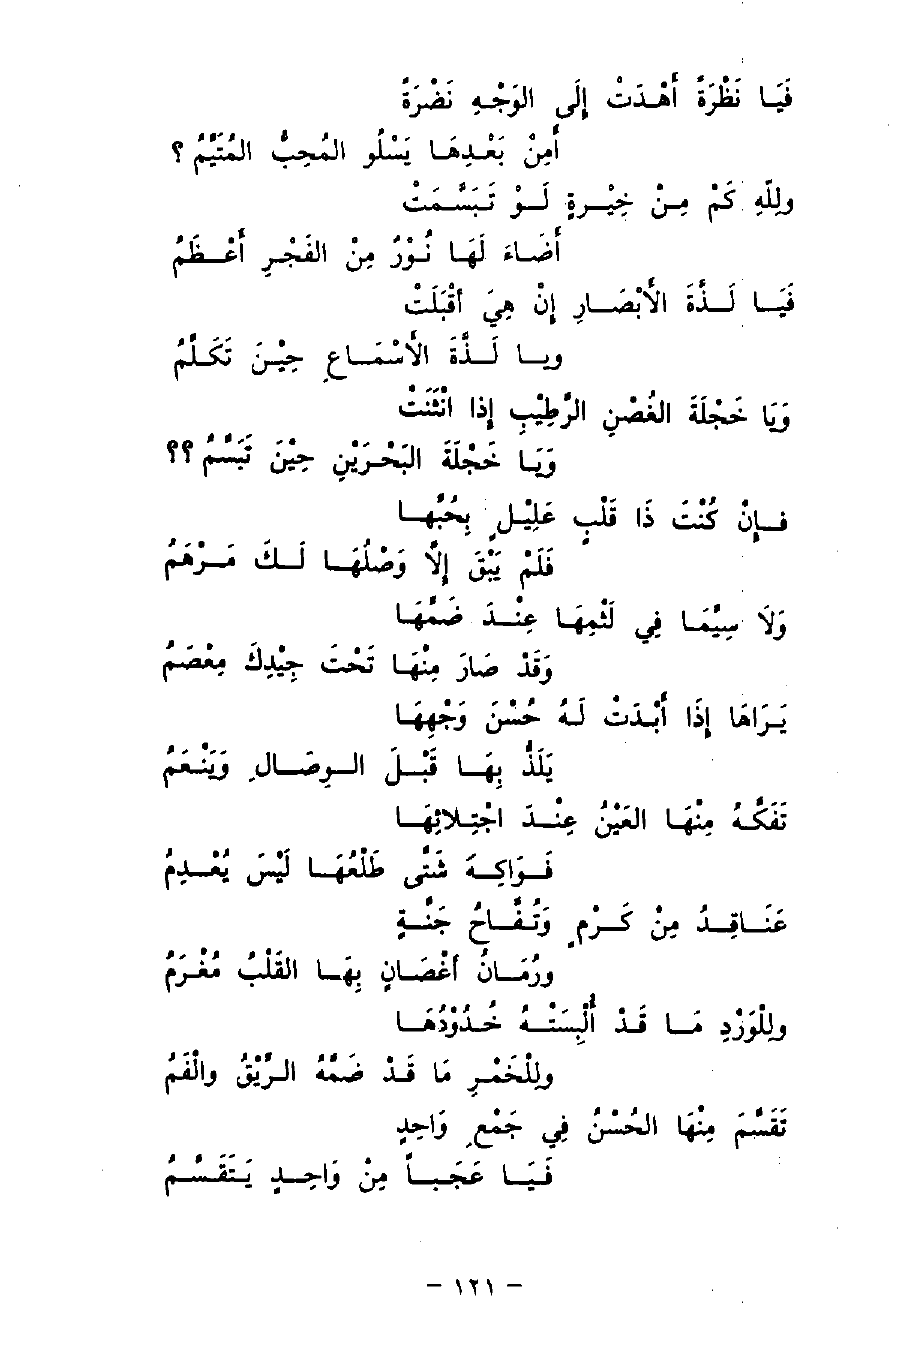 فَيَا نَظْرَةً أَهْدَتْ إِلَى الوَجْهِ نَضْرَةً
أَمِنْ بَعْدِهَا يَسْلُو المُحِبُّ المُتَيَّمُ ؟
ولِلَّهِ كَمْ مِنْ خِيْرةٍ لَوْ تَبَسَّمَتْ
أَضَاءَ لَهَا نُوْرٌ مِنَ الفَجْرِ أَعْظَمُ
فَيَا لَذَّةَ الأَبْصَارِ إِنْ هِيَ أَقْبَلَتْ
ويا لَذَّةَ الأَسْمَاعِ حِيْنَ تَكَلَّمُ
وَيَا خَجْلَةَ الغُصْنِ الرَّطِيْبِ إِذا انْثَنَتْ
وَيَا خَجْلَةَ البَحْرَيْنِ حِيْنَ تَبَسَّمُ ؟؟
فإِنْ كُنْتَ ذَا قَلْبٍ عَلِيْلٍ بِحُبِّها
فَلَمْ يَبْقَ إِلاَّ وَصْلُهَا لَكَ مَرْهَمُ
وَلاَ سِيَّمَا فِي لَثْمِهَا عِنْدَ ضَمِّهَا
وَقَدْ صَارَ مِنْهَا تَحْتَ جِيْدِكَ مِعْصَمُ
يَرَاهَا إِذَا أَبْدَتْ لَهُ حُسْنَ وَجْهِهَا
يَلَذُّ بِهَا قَبْلَ الوِصَالِ وَيَنْعَمُ
تَفَكَّهُ مِنْهَا العَيْنُ عِنْدَ اجْتِلائِهَا
فَوَاكِهَ شَتَّى طَلْعُهَا لَيْسَ يُعْدِمُ
عَنَاقِدُ مِنْ كَرْمٍ وَتُفَّاحُ جَنَّةٍ
ورُمَّانُ أَغْصَانٍ بِهَا القَلْبُ مُغْرَمُ
ولِلْوَرْدِ مَا قَدْ أُلْبِسَتْهُ خُدُوْدُهَا
ولِلْخَمْرِ مَا قَدْ ضَمَّهُ الرِّيْقُ والْفَمُ
تَقَسَّمَ مِنْهَا الحُسْنُ فِي جَمْعِ وَاحِدٍ
فَيَا عَجَباً مِنْ وَاحِدٍ يَتَقَسَّمُ
– ١٢١ –